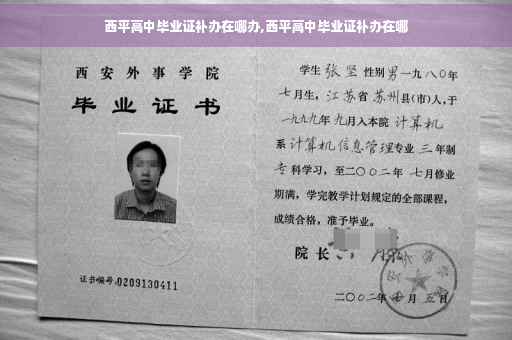 西平高中毕业证补办在哪办,西平高中毕业证补办在哪
西安外事学院
毕业证书
证书编号:0209130411
学生张坚性别男一九八〇年
七月生,江苏省苏州县(市)人,于
一九九九年九月入本院计算机
系计算机信息管理专业三年制
专科学习,至二〇〇二年七月修业
期满,学完教学计划规定的全部课程,
成绩合格,准予毕业。
院长
二〇〇二年七月五日